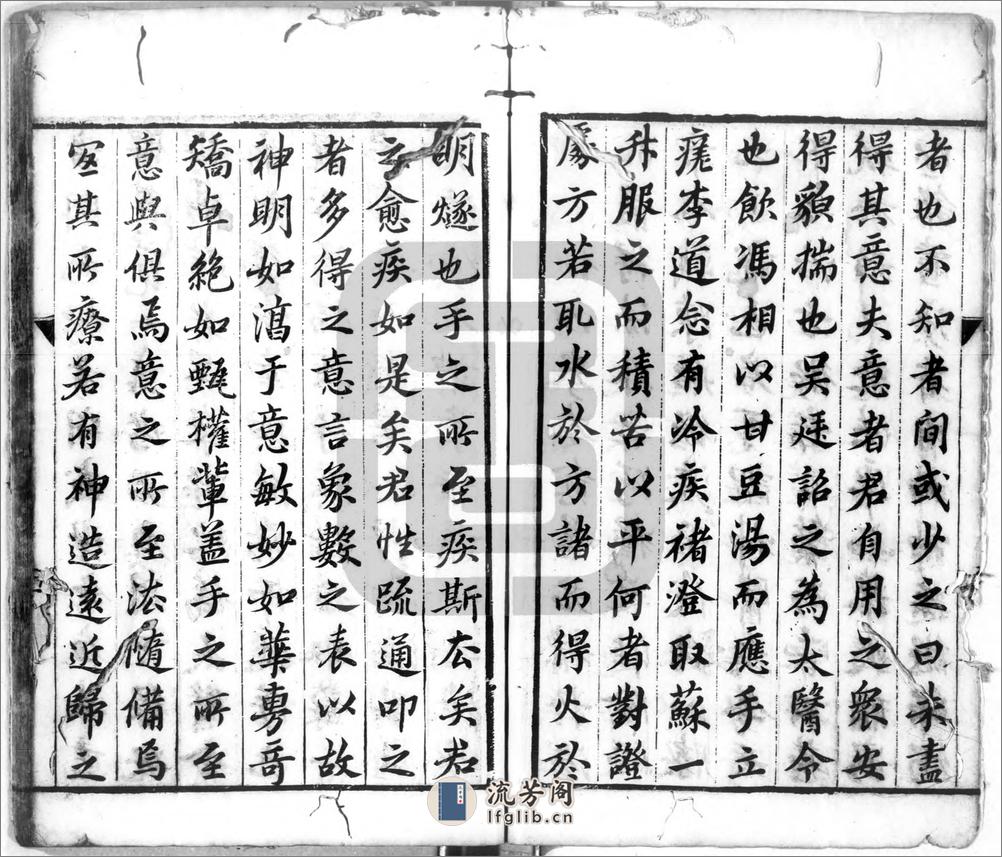 者也不知者間或少之曰未盡
得其意夫意者君自用之衆安
得貌揣也吳廷詔之為太醫令
也飲馮相以甘豆湯而應手立
痊李道念有冷疾褚澄取蘇一
升服之而積苦以平何者對證
處方若取水於方諸而得火於
明燧也手之所至疾斯去矣君
云愈疾如是矣君性疏通叩之
者多得之意言象數之表以故
神明如滀于意敏妙如華旉奇
矯卓絕如甄權輩盖手之所至
意與俱焉意之所至法隨備焉
寔其所療若有神造遠近歸之
流芳阁
lfglib.cn